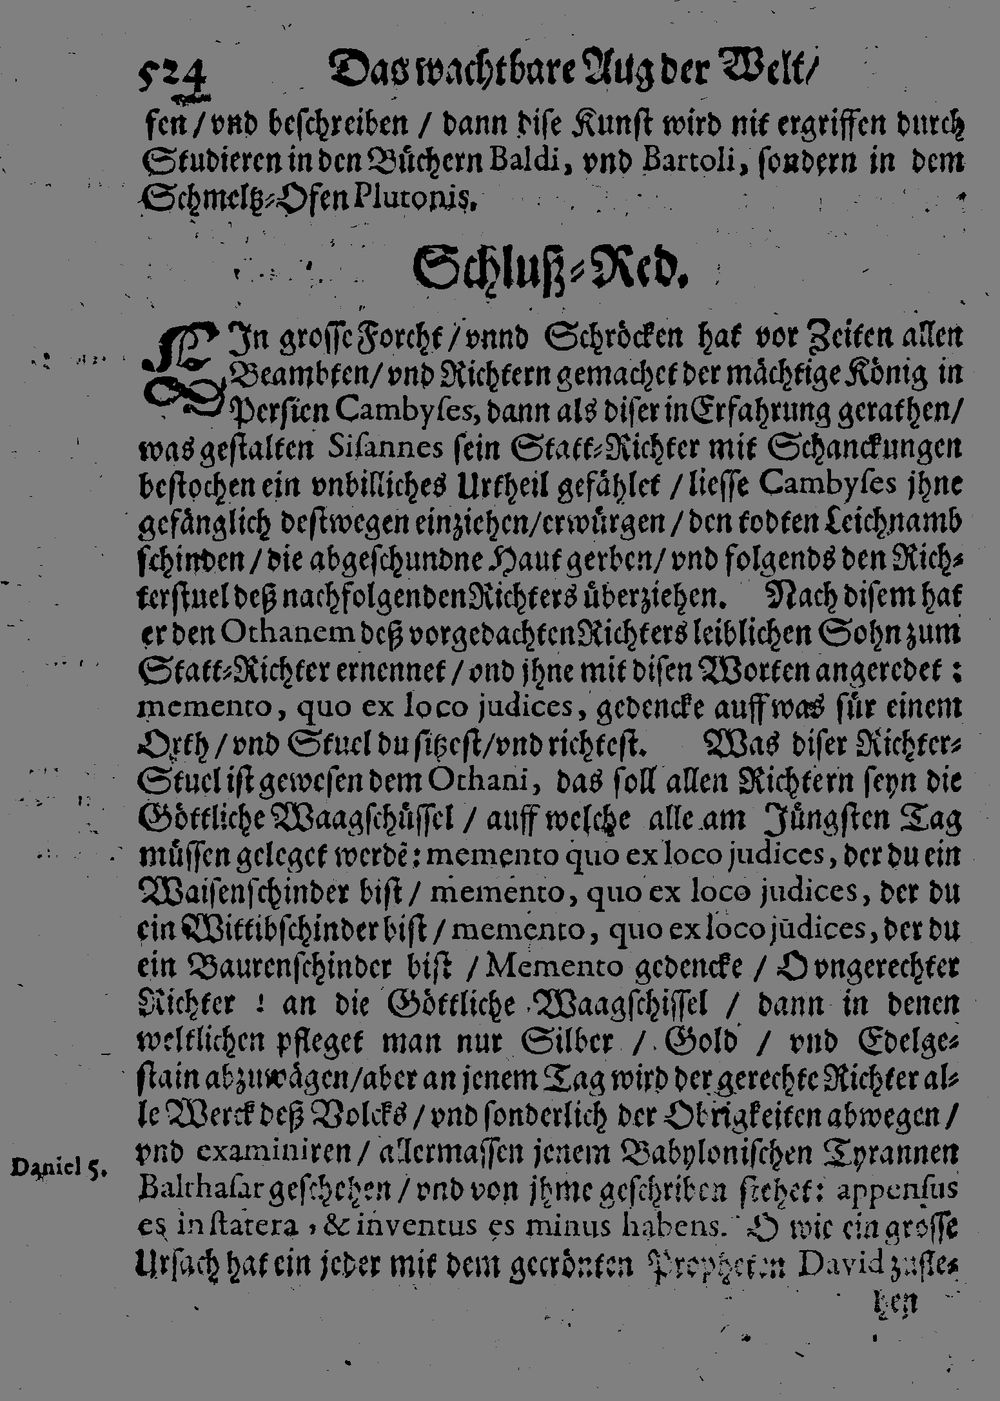 524 Das wachtbare Aug der Welt/
fen/vnd beschreiben / dann dise Kunst wird nit ergriffen durch
Studieren in den Büchern Baldi, vnd Bartoli, sondern in dem
Schmeltz-Ofen Plutonis.
Schluß-Red.
EIn grosse Forcht/vnnd Schröcken hat vor Zeiten allen
Beambten/vnd Richtern gemachet der mächtige König in
Persien Cambyses, dann als diser in Erfahrung gerathen/
was gestalten Sisannes sein Statt-Richter mit Schanckungen
bestochen ein vnbilliches Urtheil gefählet /liesse Cambyses jhne
gefänglich destwegen einziehen/erwürgen /den todten Leichnamb
schinden/die abgeschundne Haut gerben/vnd folgends den Rich-
terstuel deß nachfolgenden Richters überziehen. Nach disem hat
er den Othanem deß vorgedachten Richters leiblichen Sohn zum
Statt-Richter ernennet/vnd jhne mit disen Worten angeredet:
memento, quo ex loco judices, gedencke auff was für einem
Orth/vnd Stuel du sitzest/vnd richtest. Was diser Richter-
Stuel ist gewesen dem Othani, das soll allen Richtern seyn die
Göttliche Waagschüssel / auff welche alle am Jüngsten Tag
müssen geleget werdẽ: memento quo ex loco judices, der du ein
Waisenschinder bist/ memento, quo ex loco judices, der du
ein Wittibschinder bist/memento, quo ex loco judices, der du
ein Baurenschinder bist /Memento gedencke / O vngerechter
Richter ! an die Göttliche Waagschissel / dann in denen
weltlichen pfleget man nur Silber / Gold / vnd Edelge-
stain abzuwägen/aber an jenem Tag wird der gerechte Richter al-
le Werck deß Volcks/vnd sonderlich der Obrigkeiten abwegen/
vnd examiniren/ allermassen jenem Babylonischen Tyrannen
Daniel 5.
Balthasar geschehen/vnd von jhme geschriben stehet: appensus
es in statera, & inventus es minus habens. O wie ein grosse
Ursach hat ein jeder mit dem gecrönten Propheten David zufle-
hen